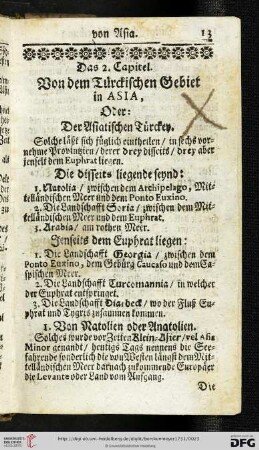 von Asia. 13
Das 2. Capitel.
Von dem Türckischen Gebiet
in ASIA,
Oder:
Der Asiatischen Türckey.
Solche läßt sich füglich eintheilen / in sechs vor-
nehme Provintzien / derer drey disseits / drey aber
jenseit dem Euphrat liegen.
Die disseits liegende seynd:
1. Natolia / zwischen dem Archipelago, Mit-
telländischen Meer und dem Ponto Euxino.
2. Die Landschafft Soria / zwischen dem Mit-
telländischen Meer und dem Euphrat.
3. Arabia / am rothen Meer.
Jenseits dem Euphrat liegen:
1. Die Landschafft Georgia / zwischen dem
Ponto Euxino, dem Gebürg Caucaso und dem Ca-
spischen Meer.
2. Die Landschafft Turcomannia / in welcher
der Euphrat entspringet.
3. Die Landschafft Diarbeck / wo der Fluß Eu-
phrat und Tygris zusammen kommen.
1. Von Natolien oder Anatolien.
Solches wurde vor Zeiten Klein-Asien / vel Asia
Minor genandt / heutigs Tags nennens die See-
fahrende sonderlich die von Westen längst dem Mit-
telländischen Meer darnach zukommende Europäer
die Levante oder Land vom Aufgang.
Die
© Universitätsbibliothek Heidelberg
Gefördert durch die
DFG